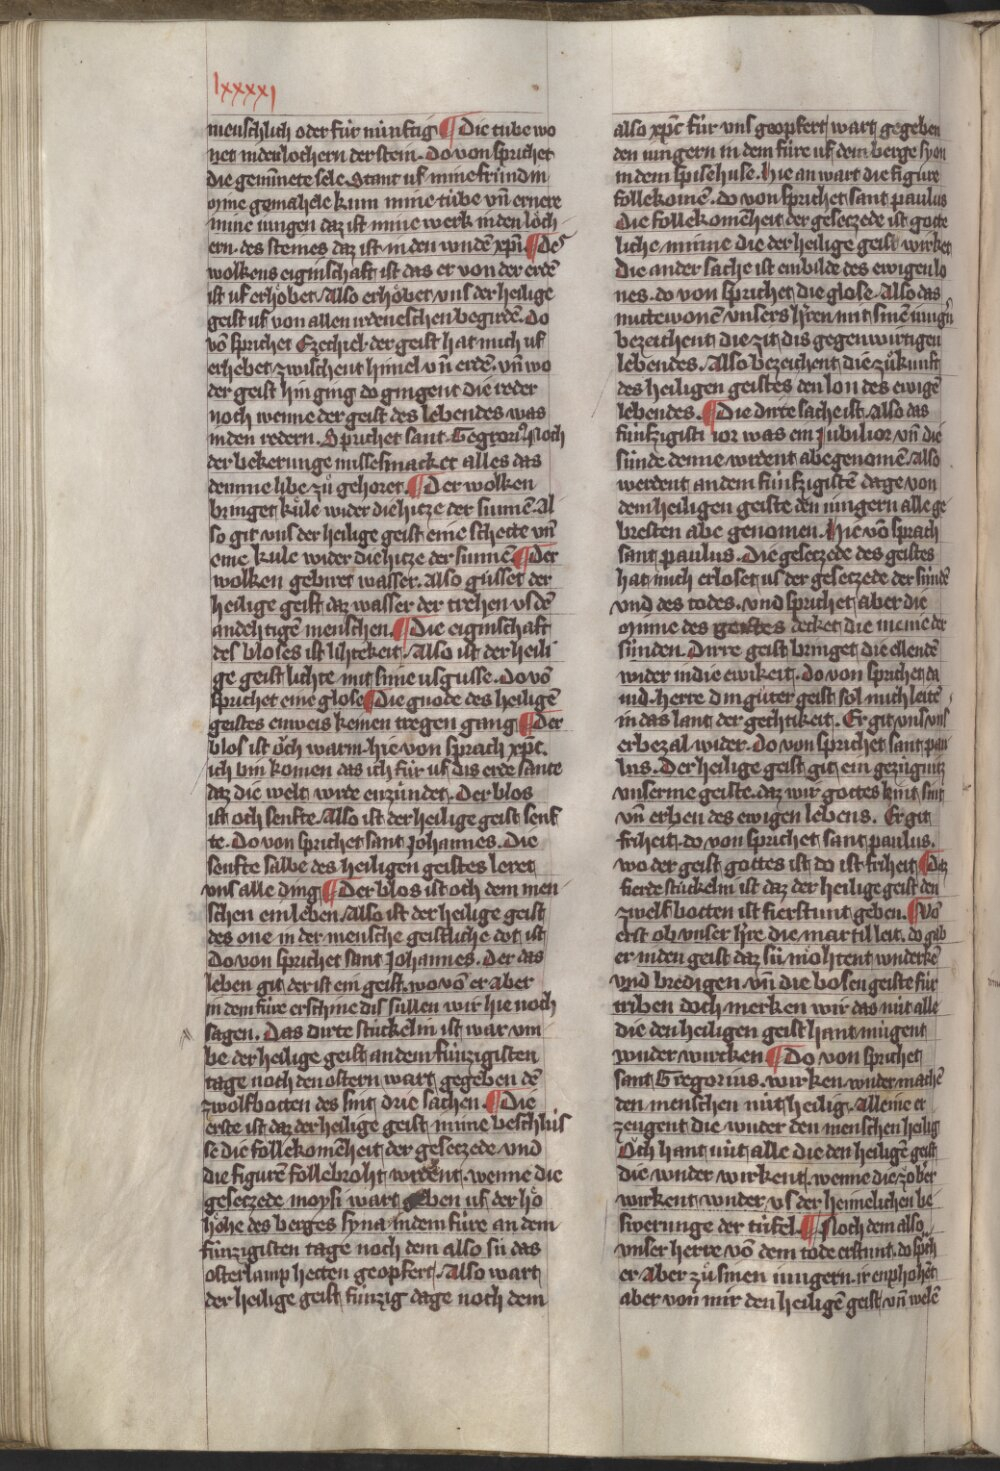 lxxxxi
menschlich oder für nünftig ¶ Die tube wo
net in den lochern der stein. Do von sprichet
die gemīnete sele. Stant uf mine fründin
mine gemahele kum mine tube vn̄ ernere
mine iungen daz ist mine werk in den löch
ern des steines daz ist in den wndē xp̄i ¶ Des
wolkens eiginschaft ist das er von der erdē
ist uf erhöbet. Also erhöbet vns der heilige
geist uf von allen irdeneschen begirdē. Do
vō sprichet Ezechiel. der geist hat mich uf
erhebet zwischent himel vn̄ erdē. vn̄ wo
der geist hin ging do gingent die reder
noch wenne der geist des lebendes was
in den redern. Sprichet sant Gregori9 Noch
der bekerunge missesmacket alles das
demme libe zů gehoret. ¶ Der wolken
bringet küle wider die hitze der sunnē. Al
so git vns der heilige geist eine schette vn̄
eine kule wider die hitze der sunnē ¶ Der
wolken gebiret wasser. Also güsset der
heilige geist daz wasser der trehen vs dē
andehtigē menschen. ¶ Die eiginschaft
des bloses ist lihtekeit. Also ist der heili
ge geist lichte mit sime usgusse. Do vō
sprichet eine glose ¶ Die gnode des heiligē
geistes enweis keinen tregen gang ¶ Der
blos ist öch warm. hie von sprach xpc.
ich bin komen das ich für uf dis erde sante
daz die welt wrde enzündet. Der blos
ist och senfte. Also ist der heilige geist senf
te. Do von sprichet sant Johannes. Die
senfte salbe des heiligen geistes leret
vns alle ding ¶ Der blos ist och dem men
schen ein leben. Also ist der heilige geist
des one in der mensche geistliche dot ist
Do von sprichet sant Johannes. Der das
leben git der ist ein geist. wo vō er aber
in dem füre erschine dis süllen wir hie noch
sagen. Das dirte stückelin ist war vm
be der heilige geist an dem fünzigisten
tage noch den ostern wart gegeben dē
zwolfbotten des sint drie sachen. ¶ Die
erste ist daz der heilige geist mine beschlüs
se die follekomēheit der gesetzede vnd
die figurē follebroht wrdent. wenne die
gesetzede moysi wart geben uf der hö
höhe des berges syna in dem füre an dem
fünzigisten tage noch dem also sü das
osterlamp hetten geopfert. Also wart
der heilige geist fünzig dage noch dem
also xpc̄ für vns geopfert wart gegeben
den iüngern in dem füre uf dem berge syon
in dem spisehuse. Hie an wart die figure
follekomē. do von sprichet sant paulus
Die follekomēheit der gesetzede ist gotte
liche minne die der heilige geist wirket
Die ander sache ist ein bilde des ewigen lo
nes. do von sprichet die glose. Also das
mittewonē vnsers h̄ren mit sinē iūgern
bezeichent die zit dis gegenwirtigen
lebendes. Also bezeichent die zůkunft
des heiligen geistes den lon des ewigē
lebendes. ¶ Die dirte sache ist. Also das
fünfzigisti ior was ein Jubilior vn̄ die
sünde denne wrdent abegenomē. Also
werdent an dem fünfzigistē dage von
dem heiligen geiste den iüngern alle ge
bresten abe genomen. Hie vō sprach
sant paulus. Die gesetzede des geistes
hat mich erloset us der gesetzede der sündē
vnd des todes. vnd sprichet aber die
minne des geistes decket die menie der
sünden. Dirre geist bringet die ellendē
wider in die ewikeit. Do von sprichet da
uid. herre din güter geist sol mich leitē
in das lant der gechtikeit. Er git vns vns
erbezal wider. Do von sprichet sant pau
lus. Der heilige geist git ein gezügnitz
vnserme geiste. daz wir gottes kint sint
vn̄ erben des ewigen lebens. Er git
friheit. do von sprichet sant paulus.
wo der geist gottes ist do ist friheit ¶ Dz
fierde stückelin ist daz der heilige geist den
zwelfbotten ist fierstunt geben. ¶ Vō
erst ob vnser h̄re die martil leit. do gab
er in den geist daz sü möhtent wnderkē
vnd bredigen vn̄ die bosen geiste für
triben doch merken wir das nüt alle
die den heiligen geist hant mügent
wnder wircken ¶ Do von sprichet
sant Gregorius. wirken wnder machē
den menschen nüt heilig. Alleine er
zeugent die wnder den menschen heilig
Och hant nüt alle die den heiligē geist
die wnder wirkent. wenne die zöber
wirkent wnder vs der heimelichen be
swerunge der tüfel. ¶ Noch dem also
vnser herre vō dem tode erstunt. do sp̄ch
er aber zů sinen iungern. ir enphohēt
aber von mir den heiligē geist vn̄ welē